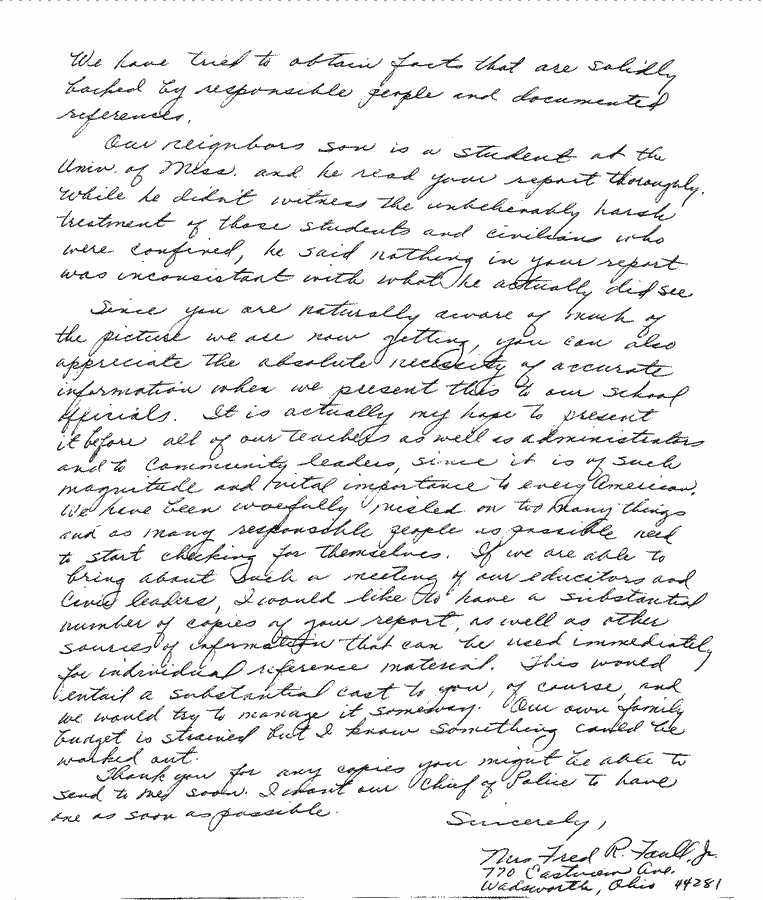 We have tried to obtain facts that are solidly
backed by responsible people and documented
references.
Our neignbors son is a student at the
Univ. of Miss. and he read your report thoroughly.
While he didn't witness the unbelievably harsh
treatment of those students and civilians who
were confined, he said nothing in your report
was inconsistant with what he actually did see
Since you are naturally aware of much of
the picture we are now getting, you can also
appreciate the absolute necessity of accurate
information when we present this to our school
officials. It is actually my hope to present
it before all of our teachers as well as administrators
and to community leaders, since it is of such
magnitude and vital importance to every American.
We have been woefully misled on too many things
and as many responsible people as possible need
to start checking for themselves. If we are able to
bring about such a meeting of our educators and
Civic leaders, I would like to have a substantial
number of copies of your report, as well as other
sources of information that can be used immediately
for individual reference material. This would
entail a substantial cost to you, of course, and
we would try to manage it someway. Our own family
budget is strained but I know something could be
worked out.
Thank you for any copies you might be able to
send to me soon. I want our Chief of Police to have
one as soon as possible.
Sincerely,
Mrs. Fred R. Faull, Jr.
770 Eastview Ave.
Wadsworth, Ohio 44281